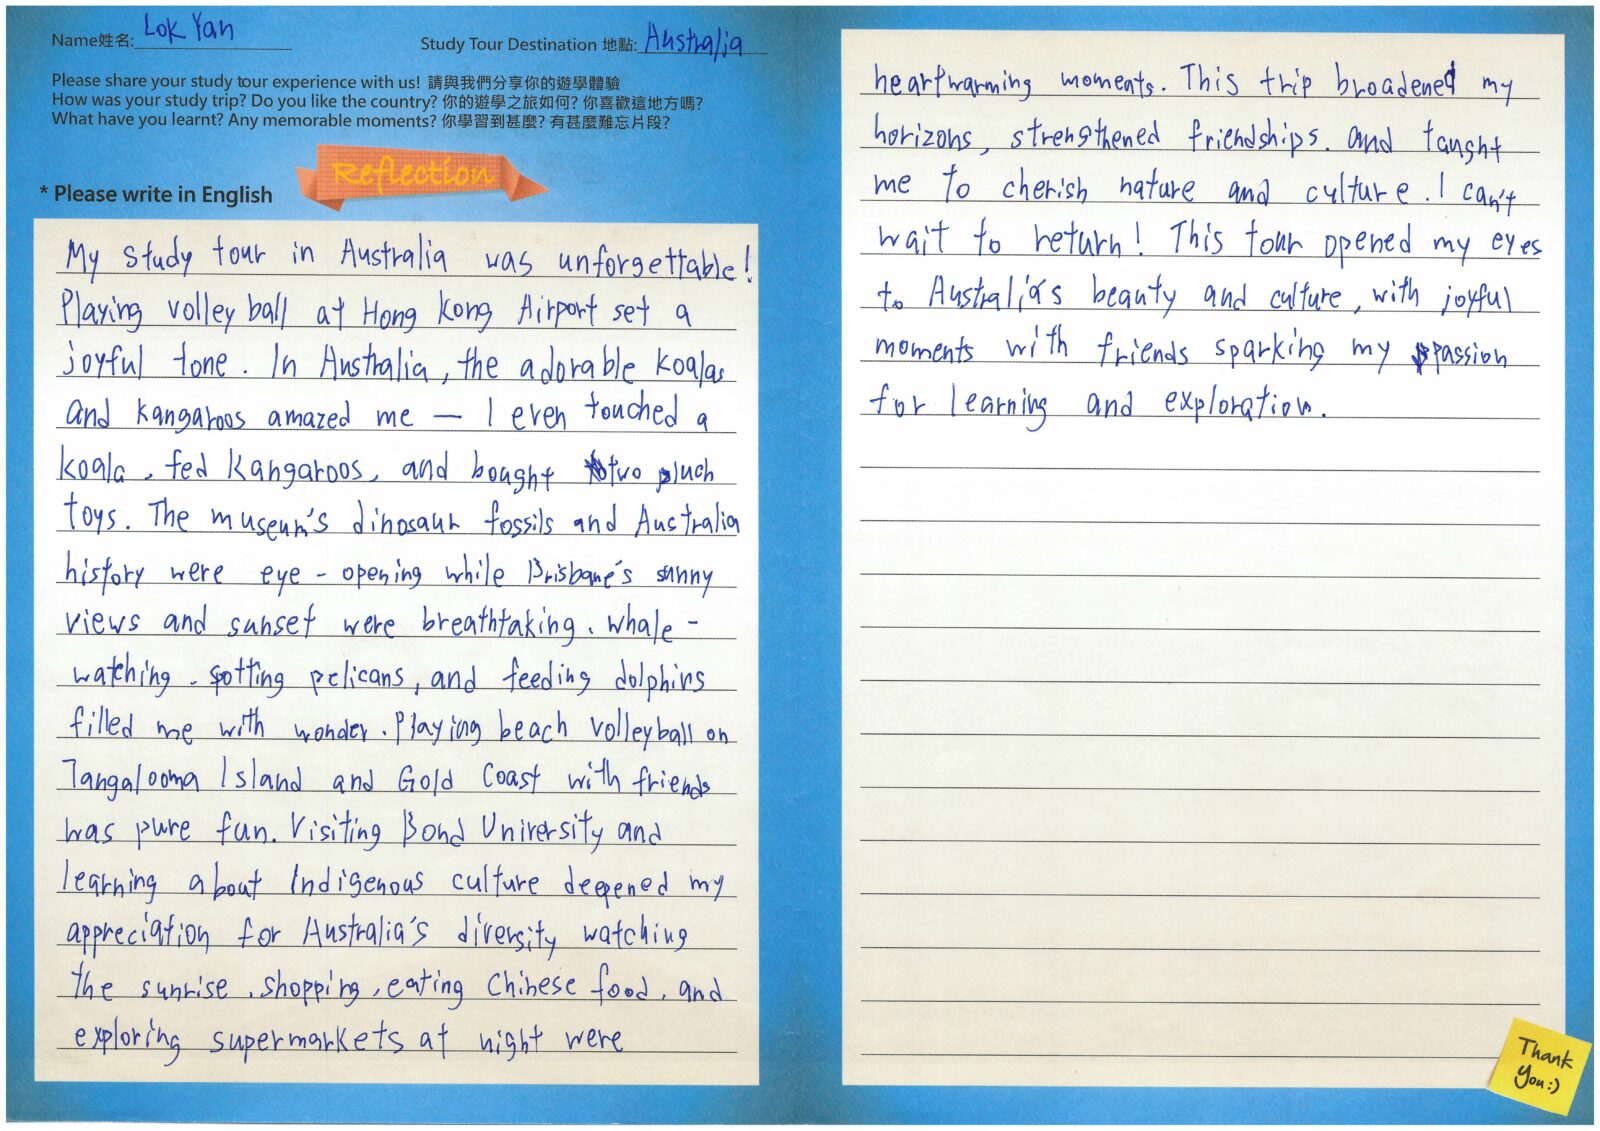 Name姓名: Lok Yan
Study Tour Destination 地點: Australia
Please share your study tour experience with us! 請與我們分享你的遊學體驗
How was your study trip? Do you like the country? 你的遊學之旅如何? 你喜歡這地方嗎?
What have you learnt? Any memorable moments? 你學習到甚麼? 有甚麼難忘片段?
Reflection
* Please write in English
My study tour in Australia was unforgettable!
Playing volleyball at Hong Kong Airport set a
joyful tone. In Australia, the adorable koalas
and kangaroos amazed me — I even touched a
koala, fed kangaroos, and bought two pluch
toys. The museum's dinosaur fossils and Australia
history were eye - opening while Brisbane's sunny
views and sunset were breathtaking. Whale -
watching, spotting pelicans, and feeding dolphins
filled me with wonder. Playing beach volleyball on
Tangalooma Island and Gold Coast with friends
was pure fun. Visiting Bond University and
learning about Indigenous culture deepened my
appreciation for Australia's diversity watching
the sunrise, shopping, eating Chinese food, and
exploring supermarkets at night were
heartwarming moments. This trip broadened my
horizons, strengthened friendships. and taught
me to cherish nature and culture. I can't
wait to return! This tour opened my eyes
to Australia's beauty and culture, with joyful
moments with friends sparking my passion
for learning and exploration.
Thank
You :)